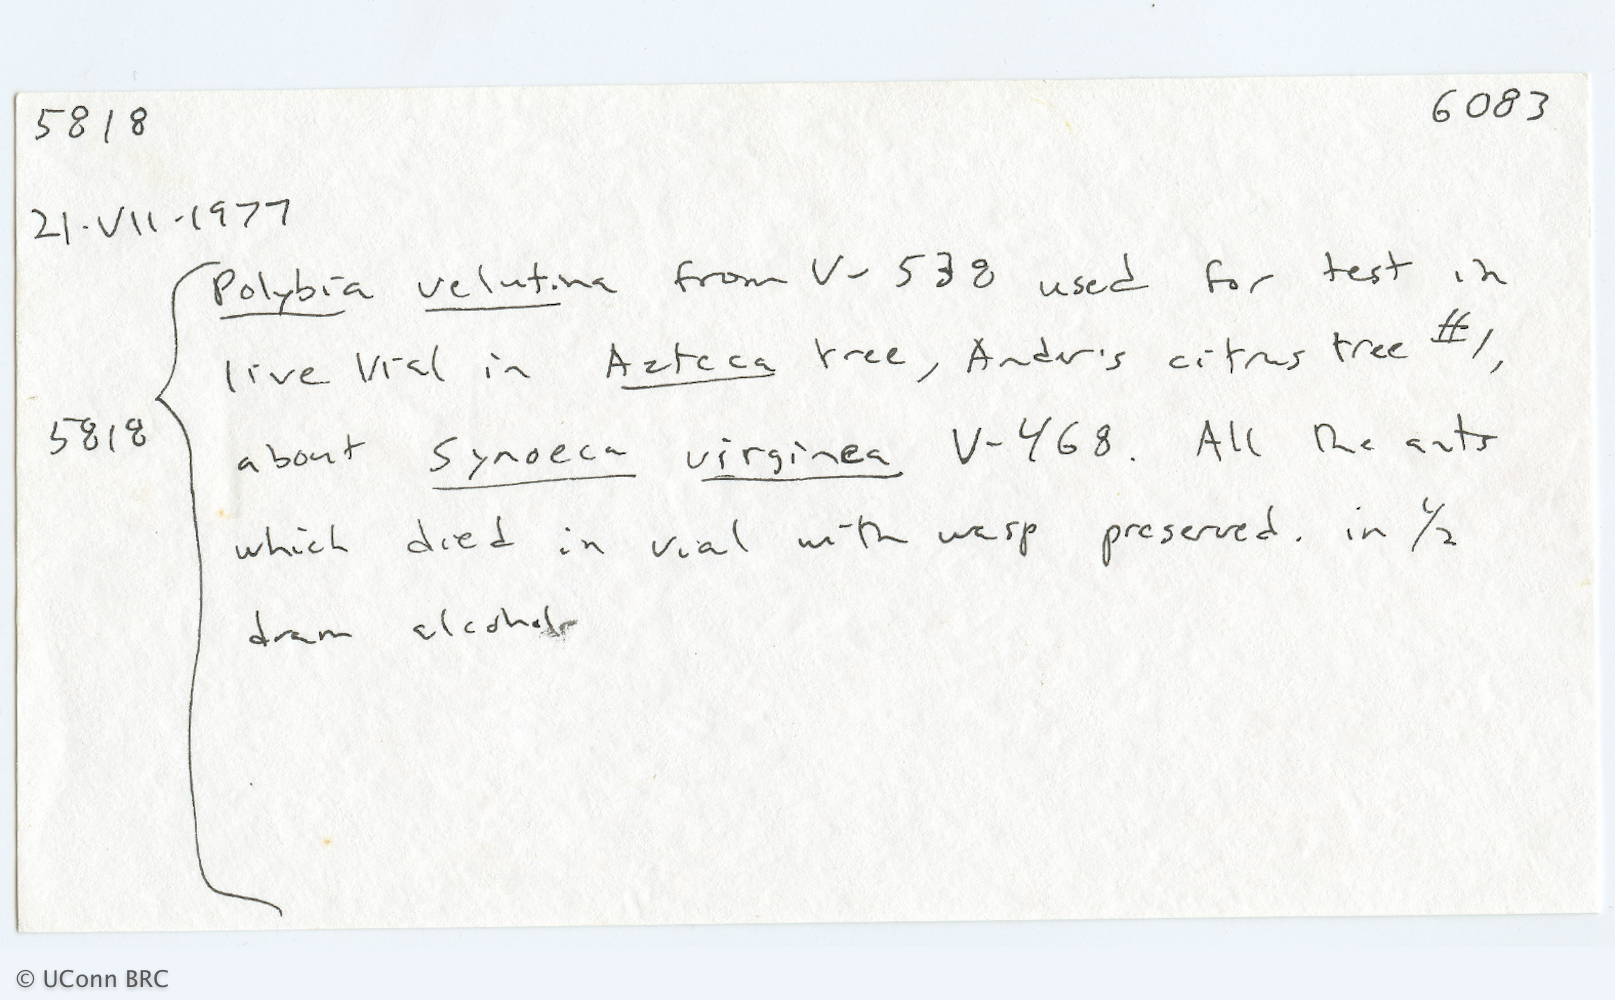 5818 6083
21-VII-1977
Polybia velutina from V-538 used for test in
live vial in Azteca tree, Andur's citrus tree #1,
5818 about Synoeca virginea V-468. All the ants
which died in vial with wasp preserved. in 1/2
dram alcohol
© UConn BRC